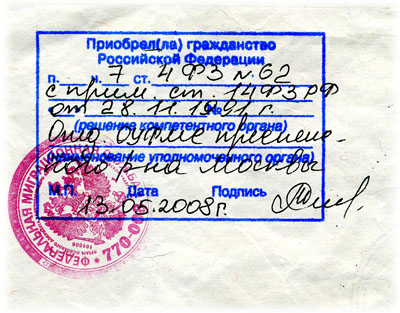 Приобрел(ла) гражданство
Российской Федерации
п. н. 7 ст. 4 ФЗ N 62
с прим. ст. 14 ФЗ РФ
от 28.11.1991 г.
№
(решение компетентного органа)
Отд. ОУФМС
(наименование уполномоченного органа)
р-на Москвы
М.П. Дата Подпись
13.05.2008 г.
ФЕДЕРАЛЬНАЯ МИГРАЦИОННАЯ
770-00